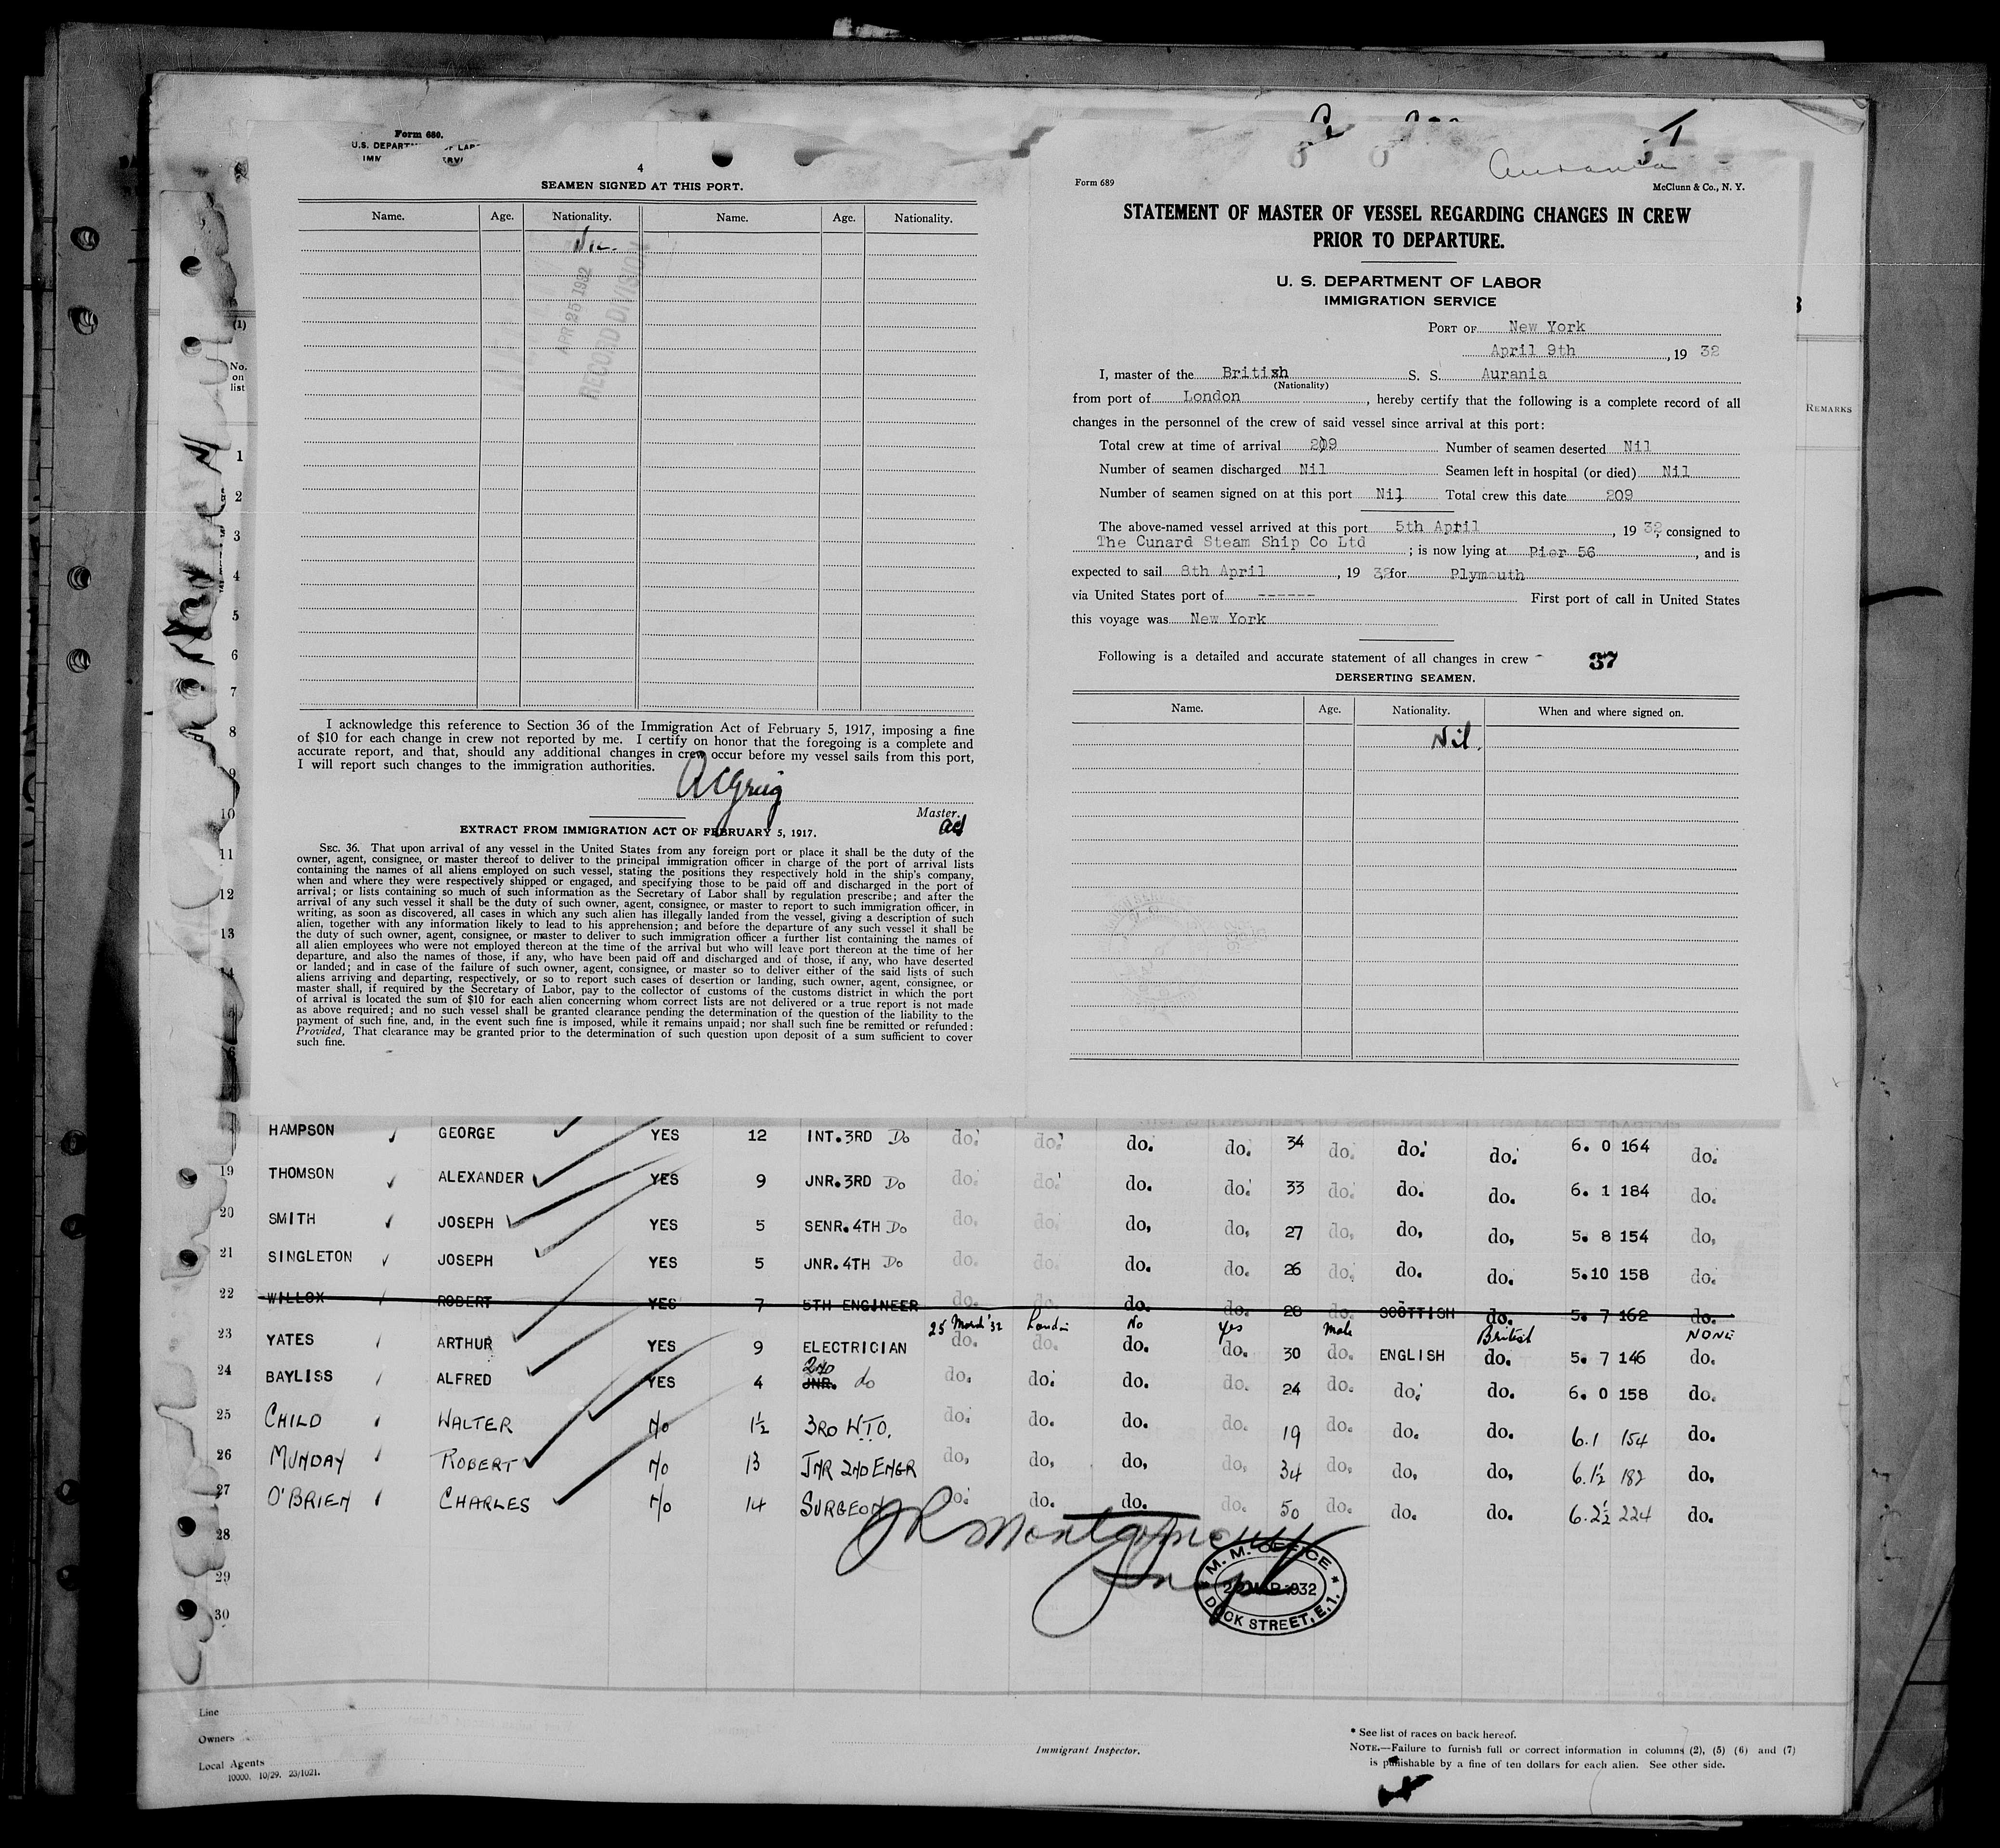 Form 680.
4
SEAMEN SIGNED AT THIS PORT.
Name. Age. Nationality. Name. Age. Nationality.
APR 25 1932
RECORD DIVISION
I acknowledge this reference to Section 36 of the Immigration Act of February 5, 1917, imposing a fine
of $10 for each change in crew not reported by me. I certify on honor that the foregoing is a complete and
accurate report, and that, should any additional changes in crew occur before my vessel sails from this port,
I will report such changes to the immigration authorities.
Master.
EXTRACT FROM IMMIGRATION ACT OF FEBRUARY 5, 1917.
SEC. 36. That upon arrival of any vessel in the United States from any foreign port or place it shall be the duty of the
owner, agent, consignee, or master thereof to deliver to the principal immigration officer in charge of the port of arrival lists
containing the names of all aliens employed on such vessel, stating the positions they respectively hold in the ship's company,
when and where they were respectively shipped or engaged, and specifying those to be paid off and discharged in the port of
arrival; or lists containing so much of such information as the Secretary of Labor shall by regulation prescribe; and after the
arrival of any such vessel it shall be the duty of such owner, agent, consignee, or master to report to such immigration officer, in
writing, as soon as discovered, all cases in which any such alien has illegally landed from the vessel, giving a description of such
alien, together with any information likely to lead to his apprehension; and before the departure of any such vessel it shall be
the duty of such owner, agent, consignee, or master to deliver to such immigration officer a further list containing the names of
all alien employees who were not employed thereon at the time of the arrival but who will leave port thereon at the time of her
departure, and also the names of those, if any, who have been paid off and discharged and of those, if any, who have deserted
or landed; and in case of the failure of such owner, agent, consignee, or master so to deliver either of the said lists of such
aliens arriving and departing, respectively, or so to report such cases of desertion or landing, such owner, agent, consignee, or
master shall, if required by the Secretary of Labor, pay to the collector of customs of the customs district in which the port
of arrival is located the sum of $10 for each alien concerning whom correct lists are not delivered or a true report is not made
as above required; and no such vessel shall be granted clearance pending the determination of the question of the liability to the
payment of such fine, and, in the event such fine is imposed, while it remains unpaid; nor shall such fine be remitted or refunded:
Provided, That clearance may be granted prior to the determination of such question upon deposit of a sum sufficient to cover
such fine.
Aurania
Form 689 McClunn & Co., N. Y.
STATEMENT OF MASTER OF VESSEL REGARDING CHANGES IN CREW
PRIOR TO DEPARTURE.
U. S. DEPARTMENT OF LABOR
IMMIGRATION SERVICE
PORT OF New York
April 9th, 19 32
I, master of the British S. S. Aurania
(Nationality)
from port of London, hereby certify that the following is a complete record of all
changes in the personnel of the crew of said vessel since arrival at this port:
Total crew at time of arrival 209 Number of seamen deserted Nil
Number of seamen discharged Nil Seamen left in hospital (or died) Nil
Number of seamen signed on at this port Nil Total crew this date 209
The above-named vessel arrived at this port 5th April, 19 32, consigned to
The Cunard Steam Ship Co Ltd; is now lying at Pier 56, and is
expected to sail 8th April, 19 32, for Plymouth
via United States port of ------ First port of call in United States
this voyage was New York
Following is a detailed and accurate statement of all changes in crew 37
DERSERTING SEAMEN.
Name. Age. Nationality. When and where signed on.
Nil.
REMARKS
(1)
No.
on
list
1
2
3
4
5
6
7
8
9
10
11
12
13
14
HAMPSON GEORGE YES 12 INT. 3RD Do do. do. do. do. 34 do. do. do. 6. 0 164 do.
19 THOMSON ALEXANDER YES 9 JNR. 3RD Do do. do. do. do. 33 do. do. do. 6. 1 184 do.
20 SMITH JOSEPH YES 5 SENR. 4TH Do do. do. do. do. 27 do. do. do. 5. 8 154 do.
21 SINGLETON JOSEPH YES 5 JNR. 4TH Do do. do. do. do. 26 do. do. do. 5.10 158 do.
22 WILLOX ROBERT YES 7 5TH ENGINEER do. do. do. do. 28 do. SCOTTISH do. 5. 7 162 do.
25 March '32 London No Yes male British NONE
23 YATES ARTHUR YES 9 ELECTRICIAN do. do. do. do. 30 do. ENGLISH do. 5. 7 146 do.
24 BAYLISS ALFRED YES 4 JNR. 2ND do do. do. do. do. 24 do. do. do. 6. 0 158 do.
25 CHILD WALTER No 1½ 3RD W.T.O. do. do. do. do. 19 do. do. do. 6.1 154 do.
26 MUNDAY ROBERT No 13 JNR 2ND ENGR do. do. do. do. 34 do. do. do. 6.1½ 182 do.
27 O'BRIEN CHARLES No 14 SURGEON do. do. do. do. 50 do. do. do. 6.2½ 224 do.
28
29
30
JR Montgomery
M. M. OFFICE
MAR 1932
DOCK STREET, E.1.
Line
Owners
Local Agents
10000. 10/29. 23/1021.
Immigrant Inspector.
* See list of races on back hereof.
NOTE.—Failure to furnish full or correct information in columns (2), (5) (6) and (7)
is punishable by a fine of ten dollars for each alien. See other side.